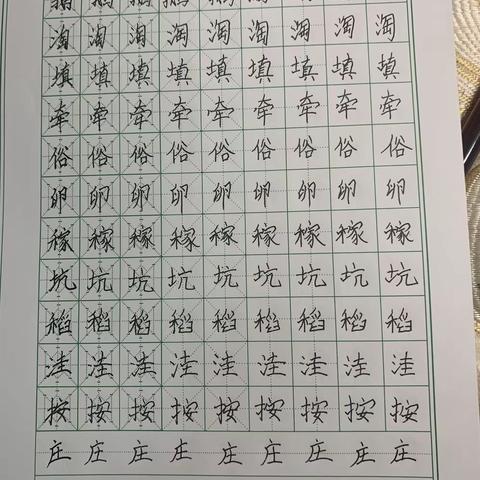 淘淘淘淘淘淘淘淘淘
填填填填填填填填填
牵牵牵牵牵牵牵牵牵
俗俗俗俗俗俗俗俗俗
卵卵卵卵卵卵卵卵卵
稼稼稼稼稼稼稼稼稼
坑坑坑坑坑坑坑坑坑
稻稻稻稻稻稻稻稻稻
洼洼洼洼洼洼洼洼洼
按按按按按按按按按
庄庄庄庄庄庄庄庄庄